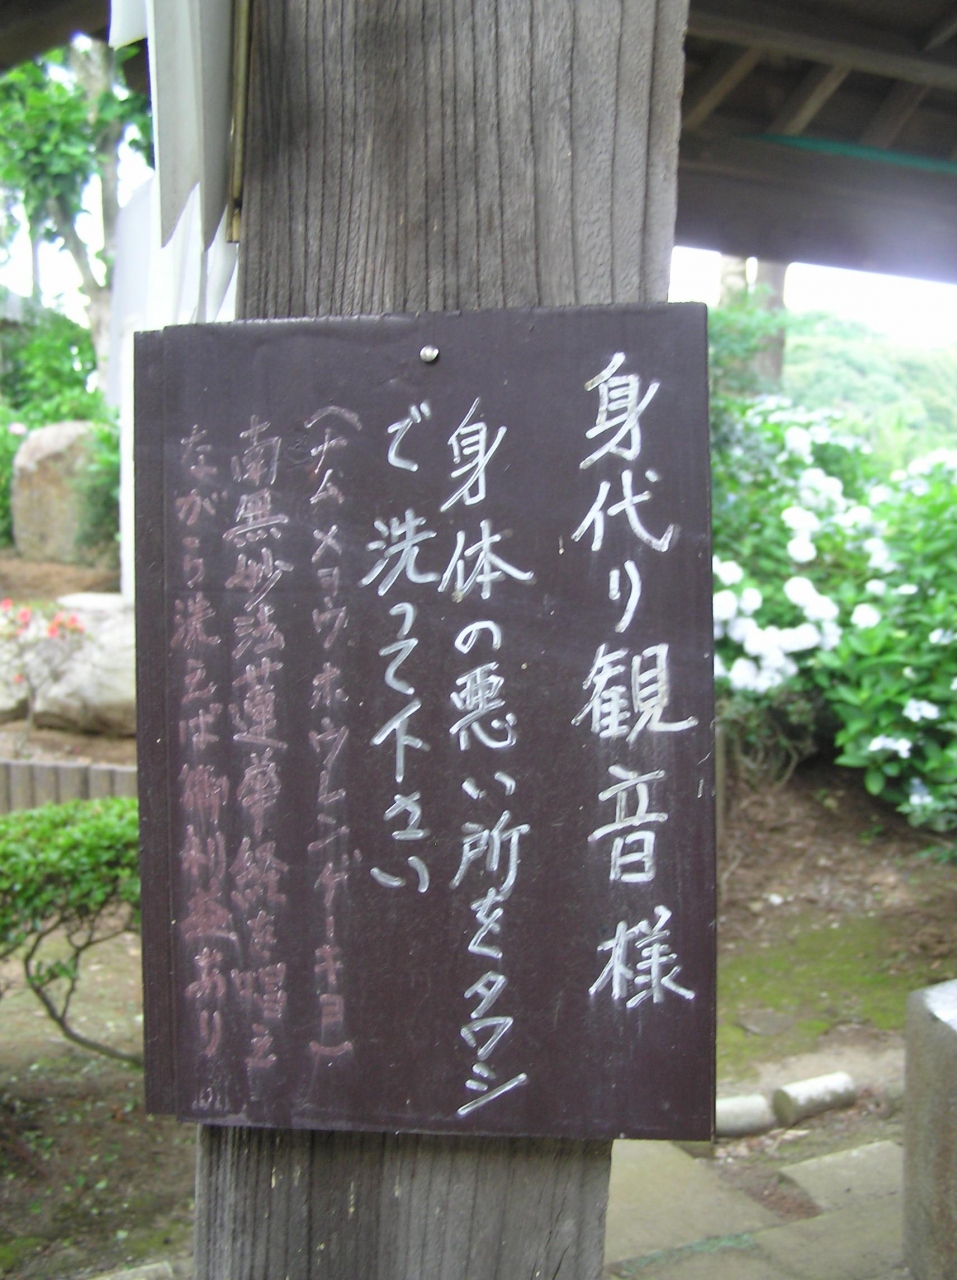 身代り観音様
身体の悪い所をタワシ
で洗って下さい
(ナムメョウホウレンゲーキョ)
南無妙法蓮華経を唱え
ながら洗えば御利益あり